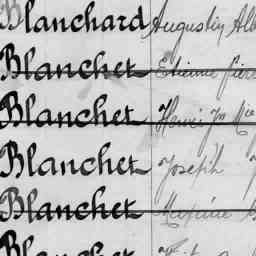 Blanchard Augustin Alb
Blanchet Etienne Pierre
Blanchet Henri Jn Mie
Blanchet Joseph
Blanchet Maxime
Blanchet